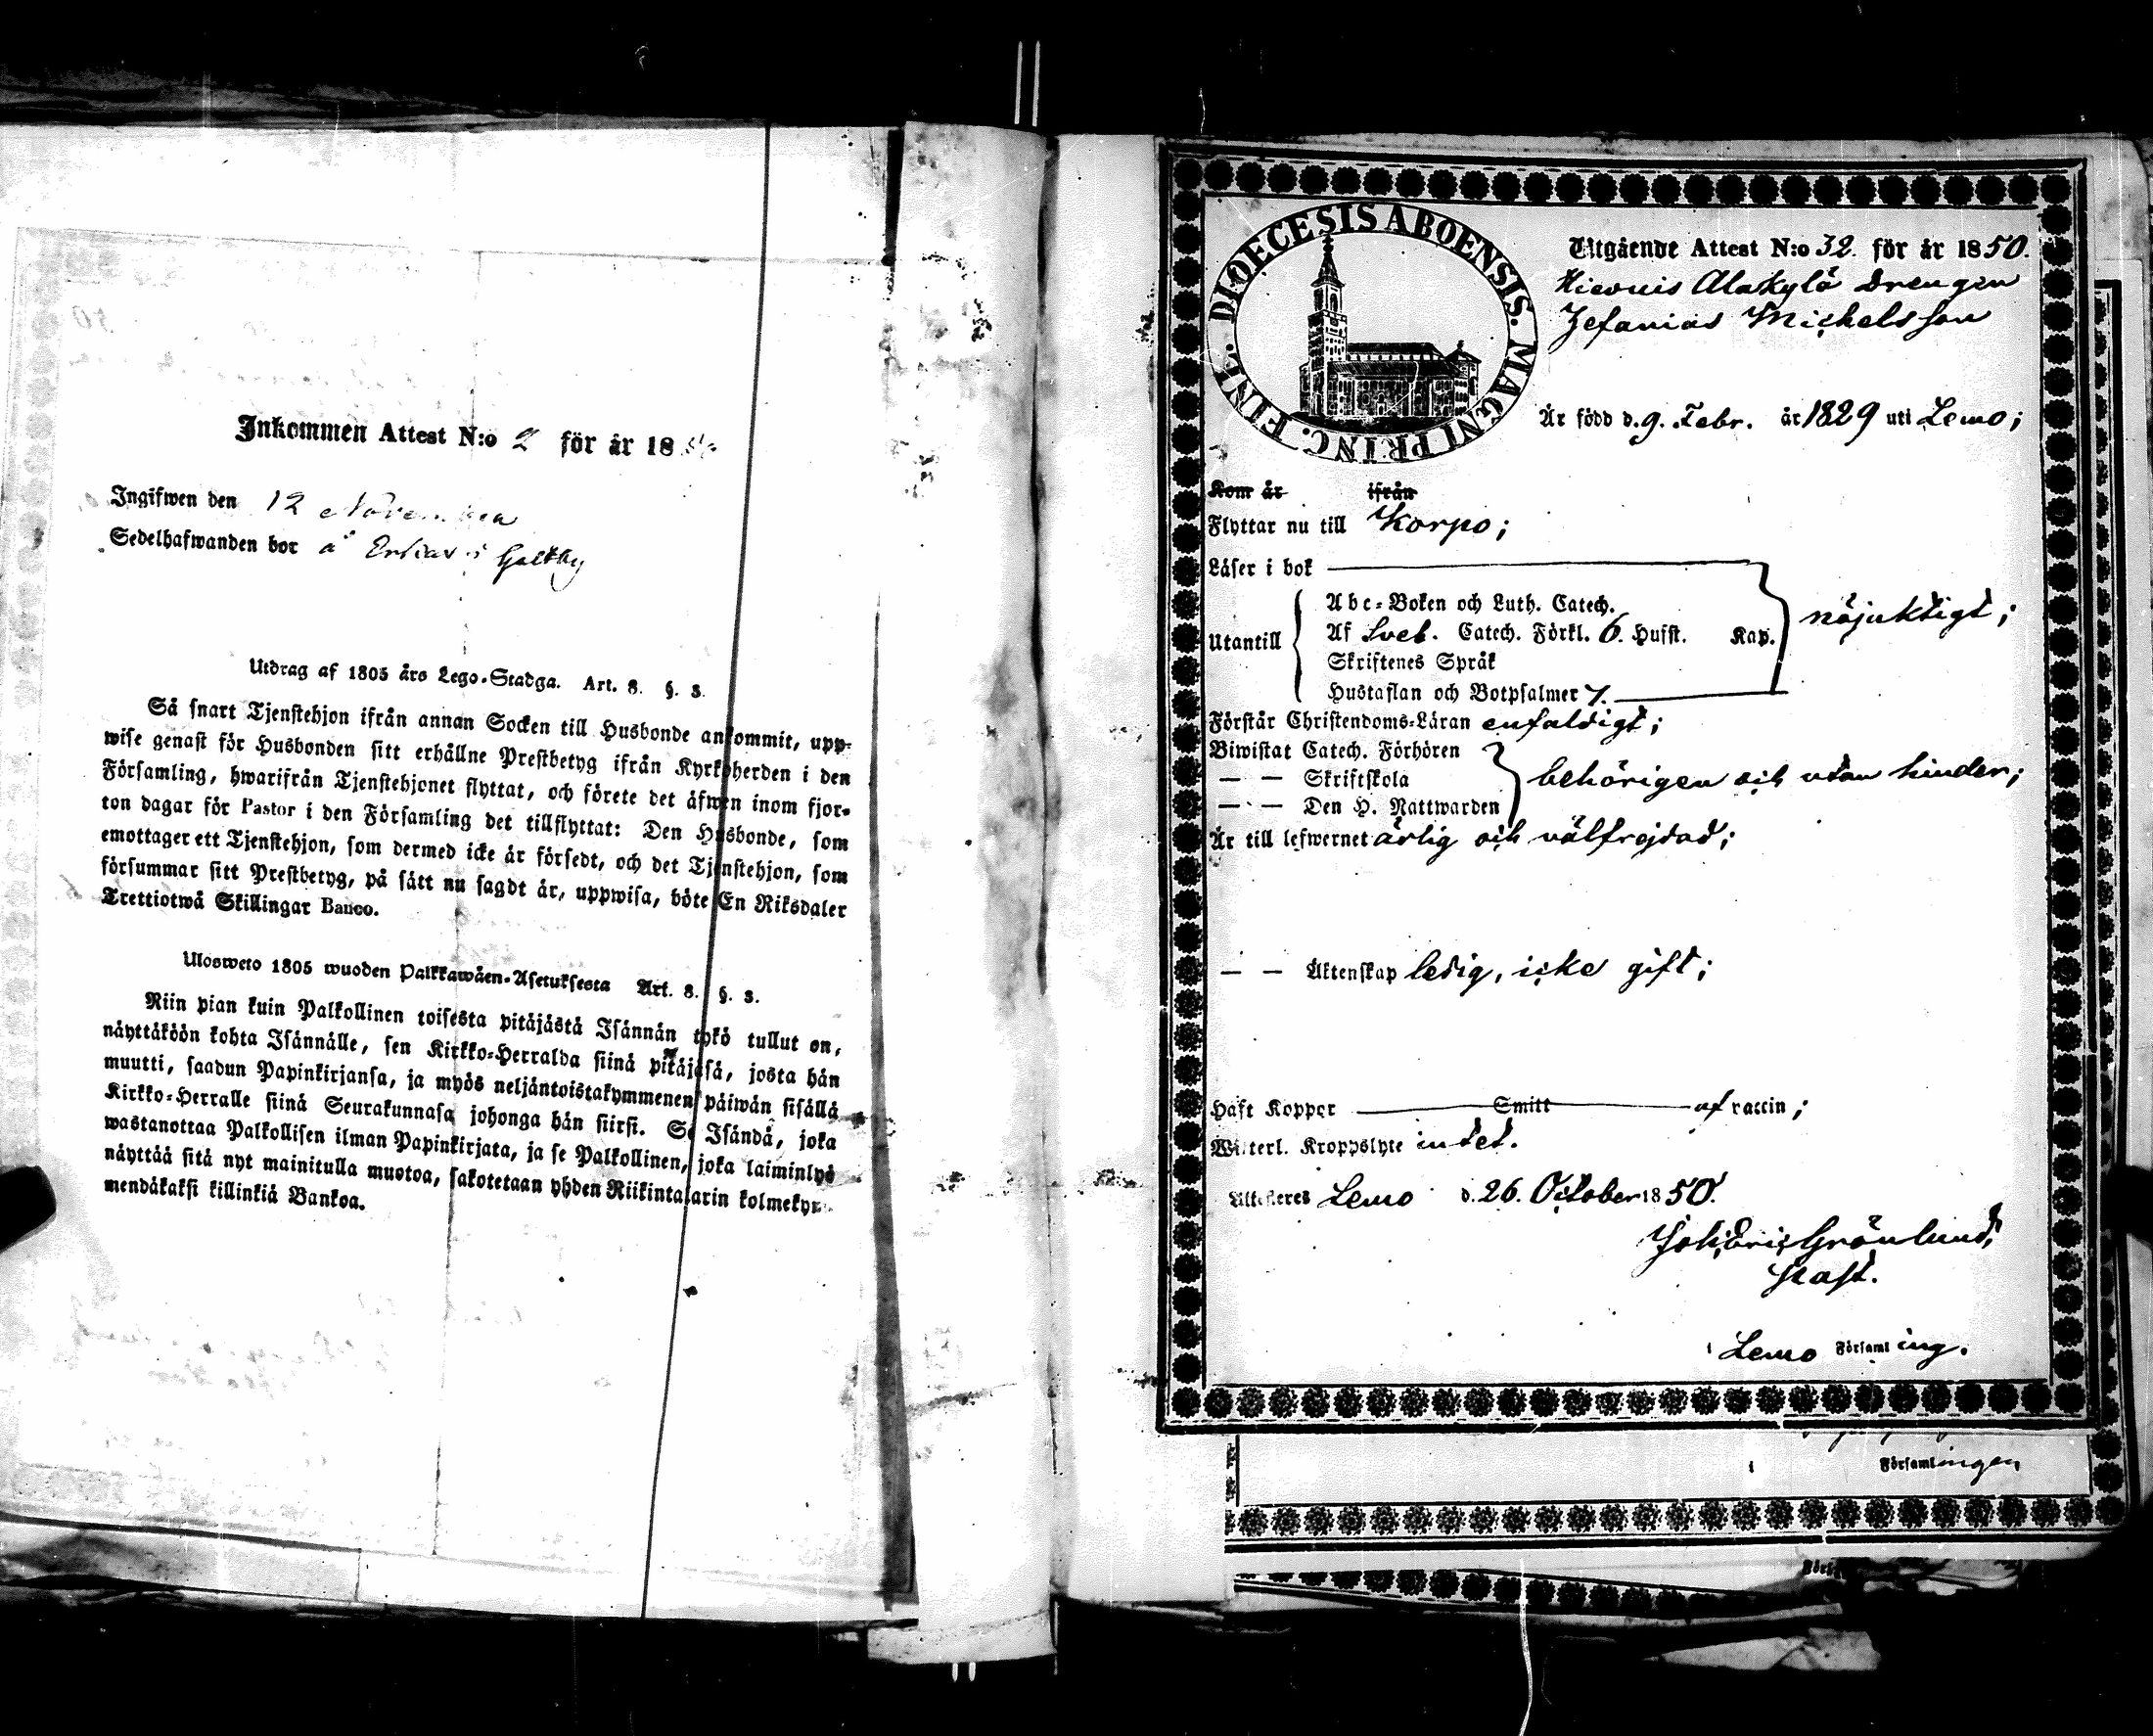 Inkommen Attest N:o 2 för år 18
Ingifwen den 12 November
Sedelhafwanden bor å i Galtby
Utdrag af 1805 års Lego-Stadga. Art. 8. §. 3.
Så snart Tjenstehjon ifrån annan Socken till Husbonde ankommit, upp-
wise genast för Husbonden sitt erhållne Prestbetyg ifrån Kyrkoherden i den
Församling, hwarifrån Tjenstehjonet flyttat, och förete det äfwen inom fjor-
ton dagar för Pastor i den Församling det tillflyttat: Den Husbonde, som
emottager ett Tjenstehjon, som dermed icke är försedt, och det Tjenstehjon, som
försummar sitt Prestbetyg, på sätt nu sagdt är, uppwisa, böte En Riksdaler
Trettiotwå Skillingar Banco.
Ulosweto 1805 wuoden Palkkawäen-Asetuksesta Art. 8. §. 3.
Niin pian kuin Palkollinen toisesta pitäjästä Isännän tykö tullut on,
näyttäköön kohta Isännälle, sen Kirkko-Herralda siinä pitäjäsä, josta hän
muutti, saadun Papinkirjansa, ja myös neljäntoistakymmenen päiwän sisällä
Kirkko-Herralle siinä Seurakunnasa johonga hän siirsi. Se Isändä, joka
wastanottaa Palkollisen ilman Papinkirjata, ja se Palkollinen, joka laiminlyö
näyttää sitä nyt mainitulla muotoa, sakotetaan yhden Riikintalarin kolmekym-
mendäkaksi killinkiä Bankoa.
DIOECESIS ABOENSIS. MAGNI PRINC. FINL.
Utgående Attest N:o 32. för år 1850.
Hiervis Alakylä Drengen
Zefanias Michelsson
Är född d. 9. Febr. år 1829 uti Lemo;
Kom år ifrån
Flyttar nu till Korpo;
Läser i bok
Utantill
Abc-Boken och Luth. Catech.
Af Sveb. Catech. Förkl. 6. Husst. Kap.
nöjaktigt;
Skriftenes Språk
Hustaflan och Botpsalmer 7.
Förstår Christendoms-Läran enfaldigt;
Biwistat Catech. Förhören
— — Skriftskola
behörigen och utan hinder;
— — Den H. Nattwarden
Är till lefwernet ärlig och välfrejdad;
— — Äktenskap ledig, icke gift;
Haft Koppor Smitt af vaccin;
Witterl. Kroppslyte intet.
Attesteres Lemo d. 26. October 1850.
Joh. Eric Grönlund,
Past.
i Lemo Församling.
i Församlingen